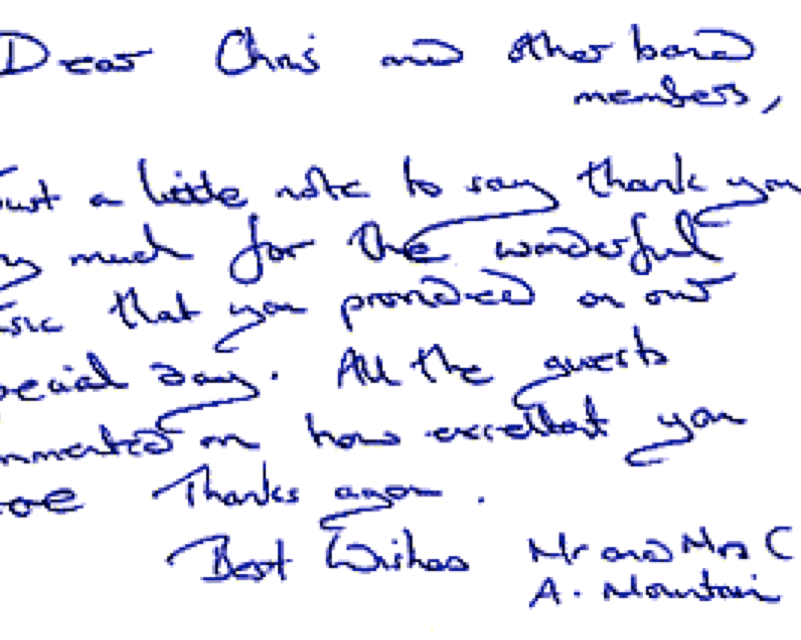 Dear Chris and other band
members,
Just a little note to say thank you
ry much for the wonderful
usic that you provided on our
pecial day. All the guests
mmented on how excellent you
Thanks again.
Best Wishes Mr and Mrs C
A. Mountain